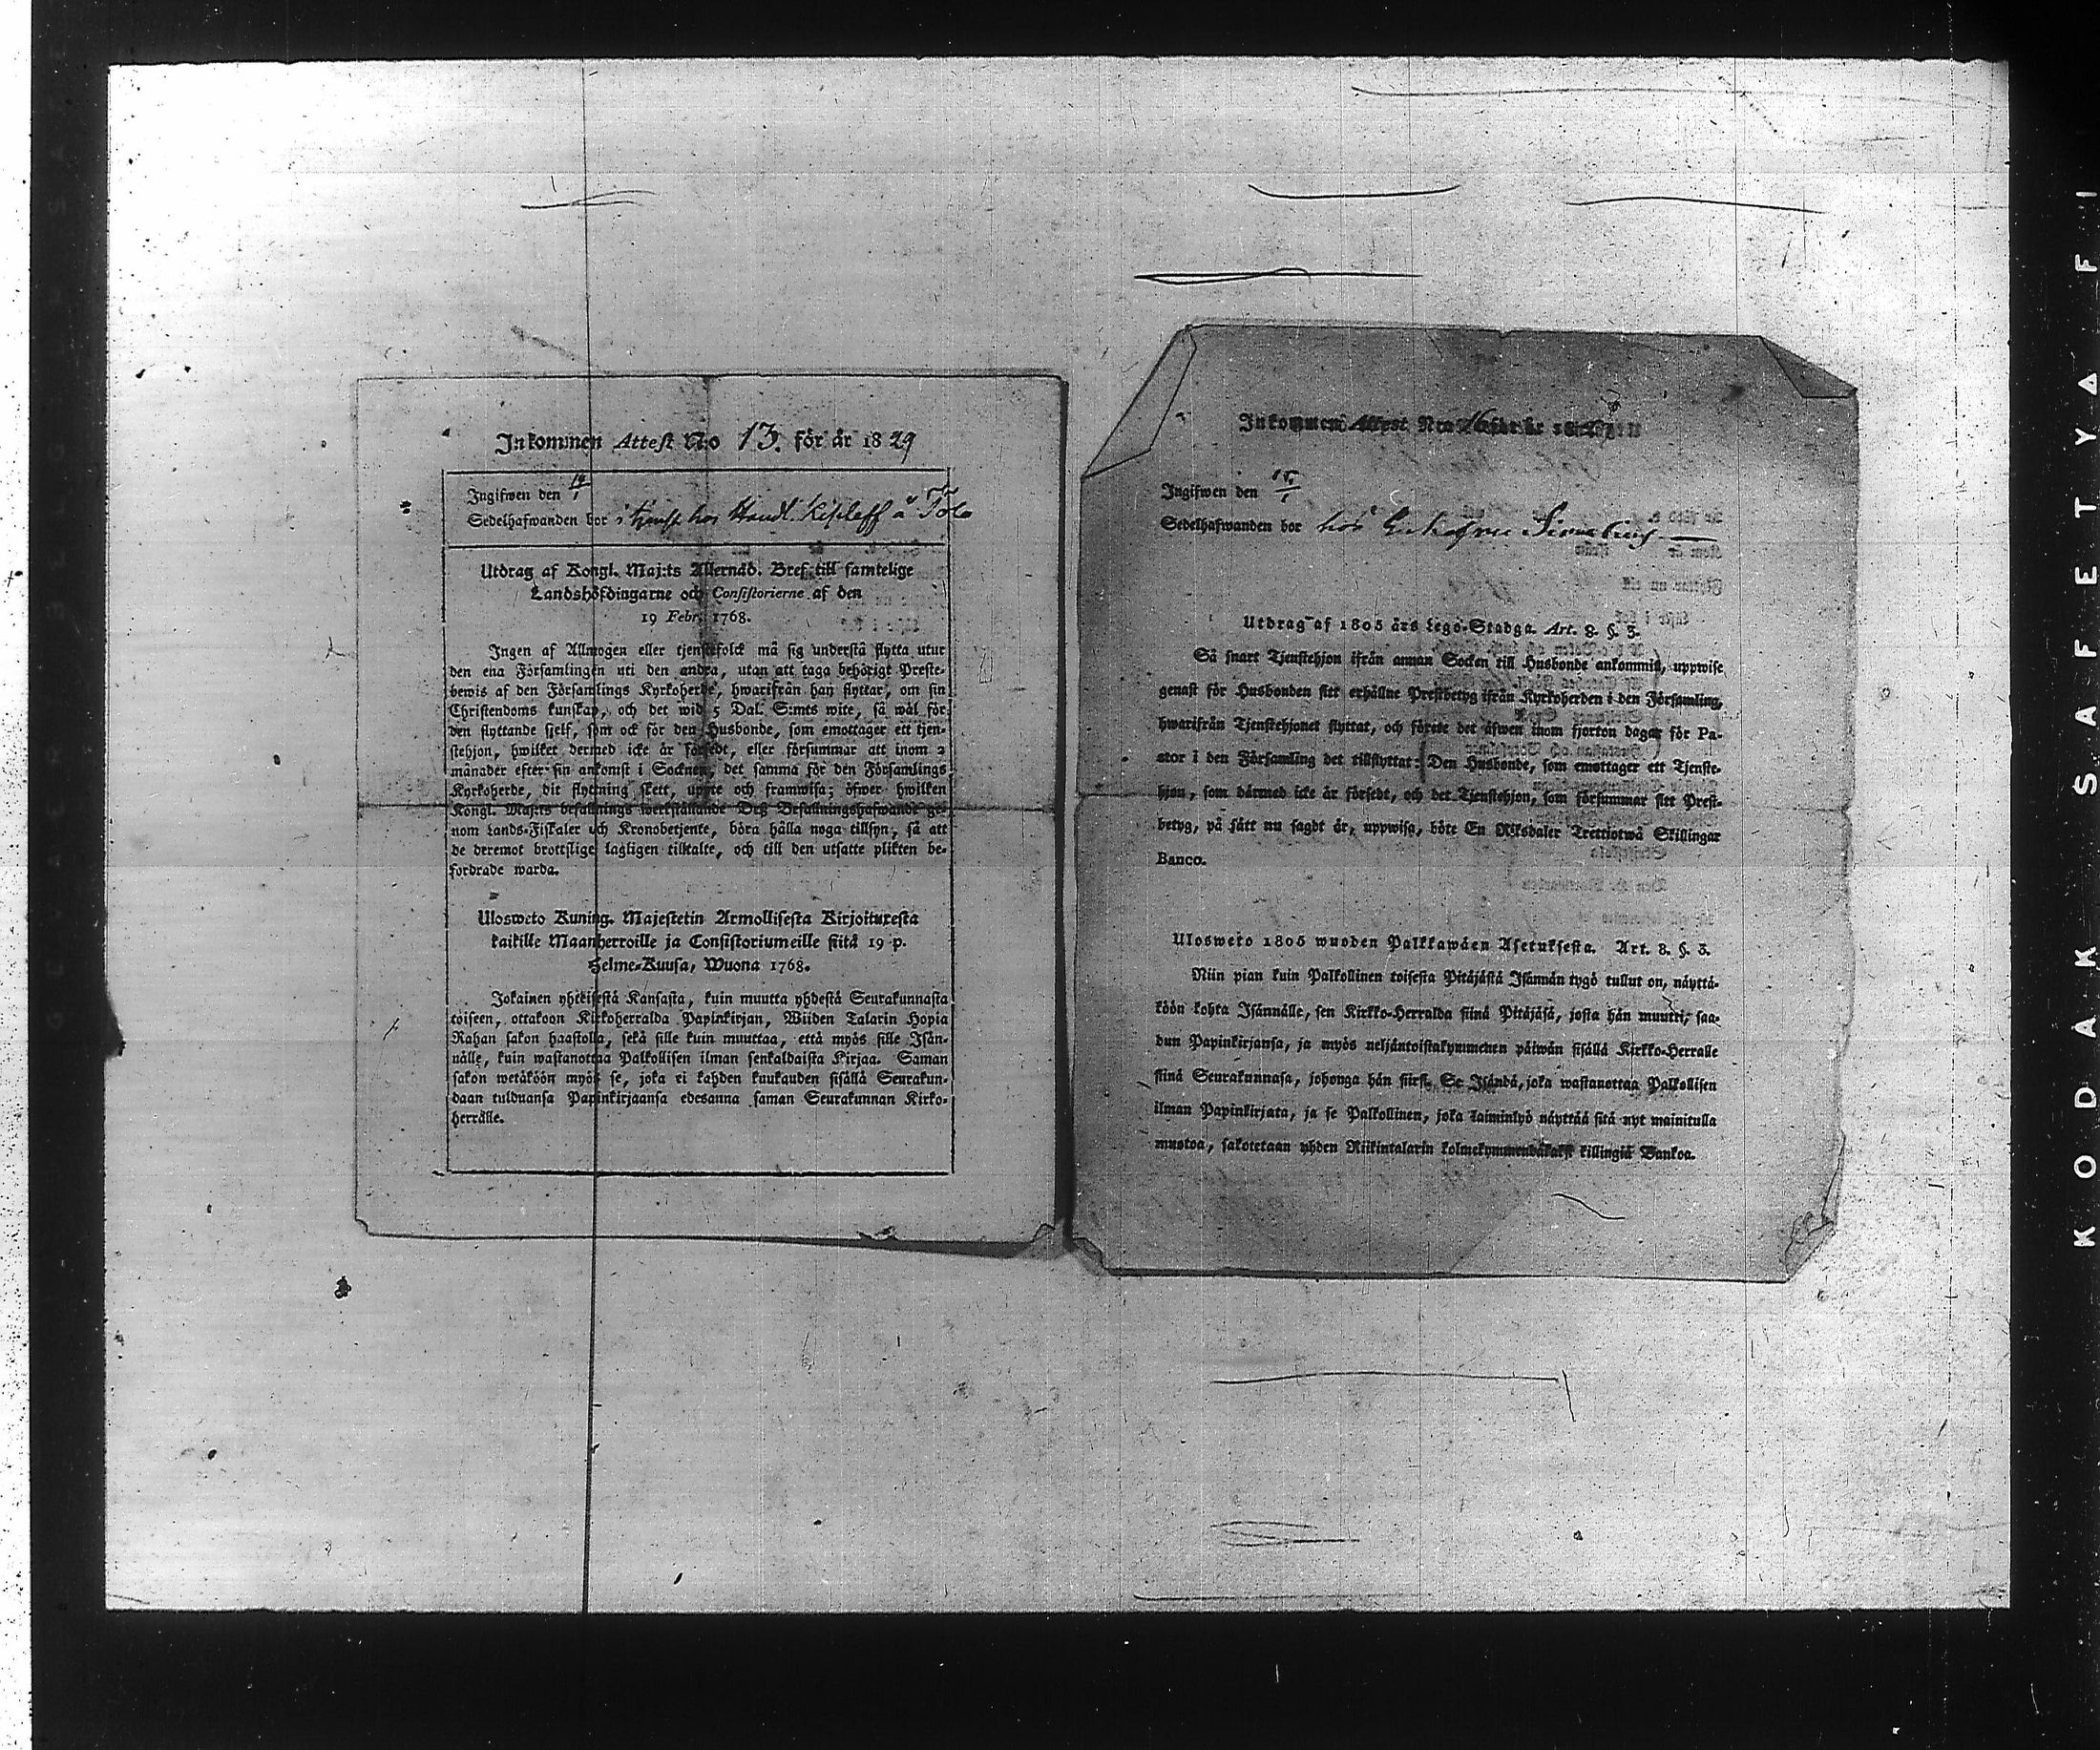 Inkommen Attest No 13. för år 1829
Ingifwen den 14/1
Sedelhafwanden bor i tjenst hos Handl. Kiseleff å Tölö
Utdrag af Kongl. Maj:ts Allernåd. Bref till samtelige
Landshöfdingarne och Consistorierne af den
19 Febr. 1768.
Ingen af Allmogen eller tjenstefolck må sig understå flytta utur
den ena Församlingen uti den andra, utan att taga behörigt Preste-
bewis af den Församlings Kyrkoherde, hwarifrån han flyttar, om sin
Christendoms kunskap, och det wid 5 Dal. S:mts wite, så wäl för
den flyttande sjelf, som ock för den Husbonde, som emottager ett tjen-
stehjon, hwilket dermed icke är försedt, eller försummar att inom 2
månader efter sin ankomst i Socknen, det samma för den Församlings
Kyrkoherde, dit flyttning skett, uppte och framwisa; öfwer hwilken
Kongl. Maj:ts befallnings werkställande Deß Befallningshafwande ge-
nom Lands-Fiskaler och Kronobetjente, böra hålla noga tillsyn, så att
de deremot brottslige lagligen tilltalte, och till den utsatte plikten be-
fordrade warda.
Ulosweto Kuning. Majestetin Armollisesta Kirjoituxesta
kaikille Maanherroille ja Consistoriumeille siitä 19 p.
Helme-Kuusa, Wuona 1768.
Jokainen yhteisestä Kansasta, kuin muutta yhdestä Seurakunnasta
toiseen, ottakoon Kirkoherralda Papinkirjan, Wiiden Talarin Hopia
Rahan sakon haastolla, sekä sille kuin muuttaa, että myös sille Isän-
nälle, kuin wastanottaa Palkollisen ilman senkaldaista Kirjaa. Saman
sakon wetäköön myös se, joka ei kahden kuukauden sisällä Seurakun-
daan tulduansa Papinkirjaansa edesanna saman Seurakunnan Kirko-
herralle.
Inkommen Attest Nro 16 för år
Ingifwen den 15/1
Sedelhafwanden bor hos
Utdrag af 1805 års Lego-Stadga. Art. 8. §. 3.
Så snart Tjenstehjon ifrån annan Socken till Husbonde ankommit, uppwise
genast för Husbonden sitt erhållne Prestbetyg ifrån Kyrkoherden i den Församling,
hwarifrån Tjenstehjonet flyttat, och förete det äfwen inom fjorton dagar för Pa-
stor i den Församling det tillflyttat: Den Husbonde, som emottager ett Tjenste-
hjon, som därmed icke är försedt, och det Tjenstehjon, som försummar sitt Prest-
betyg, på sätt nu sagdt är, uppwisa, böte En Riksdaler Trettiotwå Skillingar
Banco.
Ulosweto 1805 wuoden Palkkawäen Asetuksesta. Art. 8. §. 3.
Niin pian kuin Palkollinen toisesta Pitäjästä Isännän tygö tullut on, näyttä-
köön kohta Isännälle, sen Kirkko-Herralda siinä Pitäjäsä, josta hän muutti, saa-
dun Papinkirjansa, ja myös neljäntoistakymmenen päiwän sisällä Kirkko-Herralle
siinä Seurakunnasa, johonga hän siirsi. Se Isändä, joka wastanottaa Palkollisen
ilman Papinkirjata, ja se Palkollinen, joka laiminlyö näyttää sitä nyt mainitulla
muotoa, sakotetaan yhden Riikintalarin kolmekymmendäkaksi killingiä Bankoa.
KODAK SAFETY